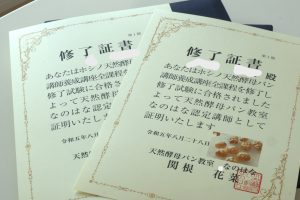 修了証書
あなたはホシノ天然酵
講師養成講座全課程
修了試験に合格さ
よって天然酵母パ
なのはな認定講師
証明いたします
令和五年八月
天然酵母パン
関根
修了証書
殿
あなたはホシノ天然酵母パン
講師養成講座全課程を修了し
修了試験に合格されました
よって天然酵母パン教室
なのはな認定講師として
証明いたします
令和五年八月二十八日
天然酵母パン教室 なのはな
関根 花菜